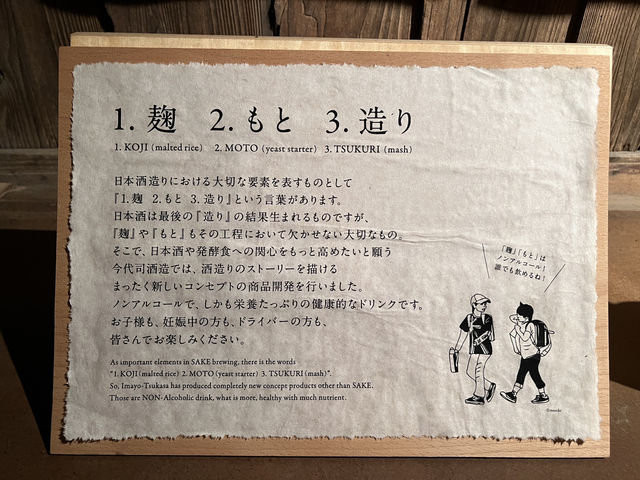 1. 麹 2. もと 3. 造り
1. KOJI (malted rice) 2. MOTO (yeast starter) 3. TSUKURI (mash)
日本酒造りにおける大切な要素を表すものとして
『1. 麹 2. もと 3. 造り』という言葉があります。
日本酒は最後の『造り』の結果生まれるものですが、
『麹』や『もと』もその工程において欠かせない大切なもの。
そこで、日本酒や発酵食への関心をもっと高めたいと願う
今代司酒造では、酒造りのストーリーを描ける
まったく新しいコンセプトの商品開発を行いました。
ノンアルコールで、しかも栄養たっぷりの健康的なドリンクです。
お子様も、妊娠中の方も、ドライバーの方も、
皆さんでお楽しみください。
As important elements in SAKE brewing, there is the words
"1. KOJI (malted rice) 2. MOTO (yeast starter) 3. TSUKURI (mash)".
So, Imayo-Tsukasa has produced completely new concept products other than SAKE.
Those are NON-Alcoholic drink, what is more, healthy with much nutrient.
『麹』『もと』は
ノンアルコール！
誰でも飲めるね！